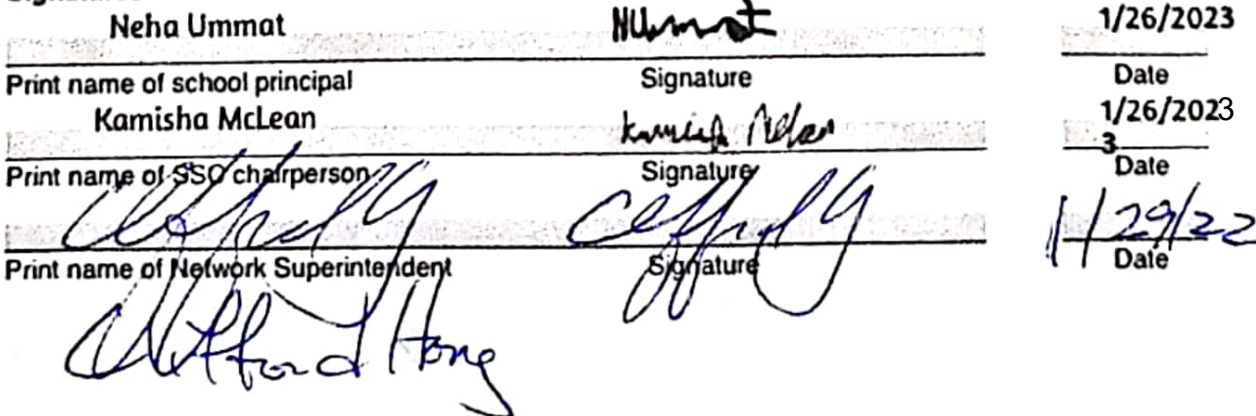 Neha Ummat NUmmat 1/26/2023
Print name of school principal Signature Date
Kamisha McLean 1/26/2023
3
Print name of SSC chairperson Signature Date
1/29/22
Print name of Network Superintendent Signature Date
Clifford Hong